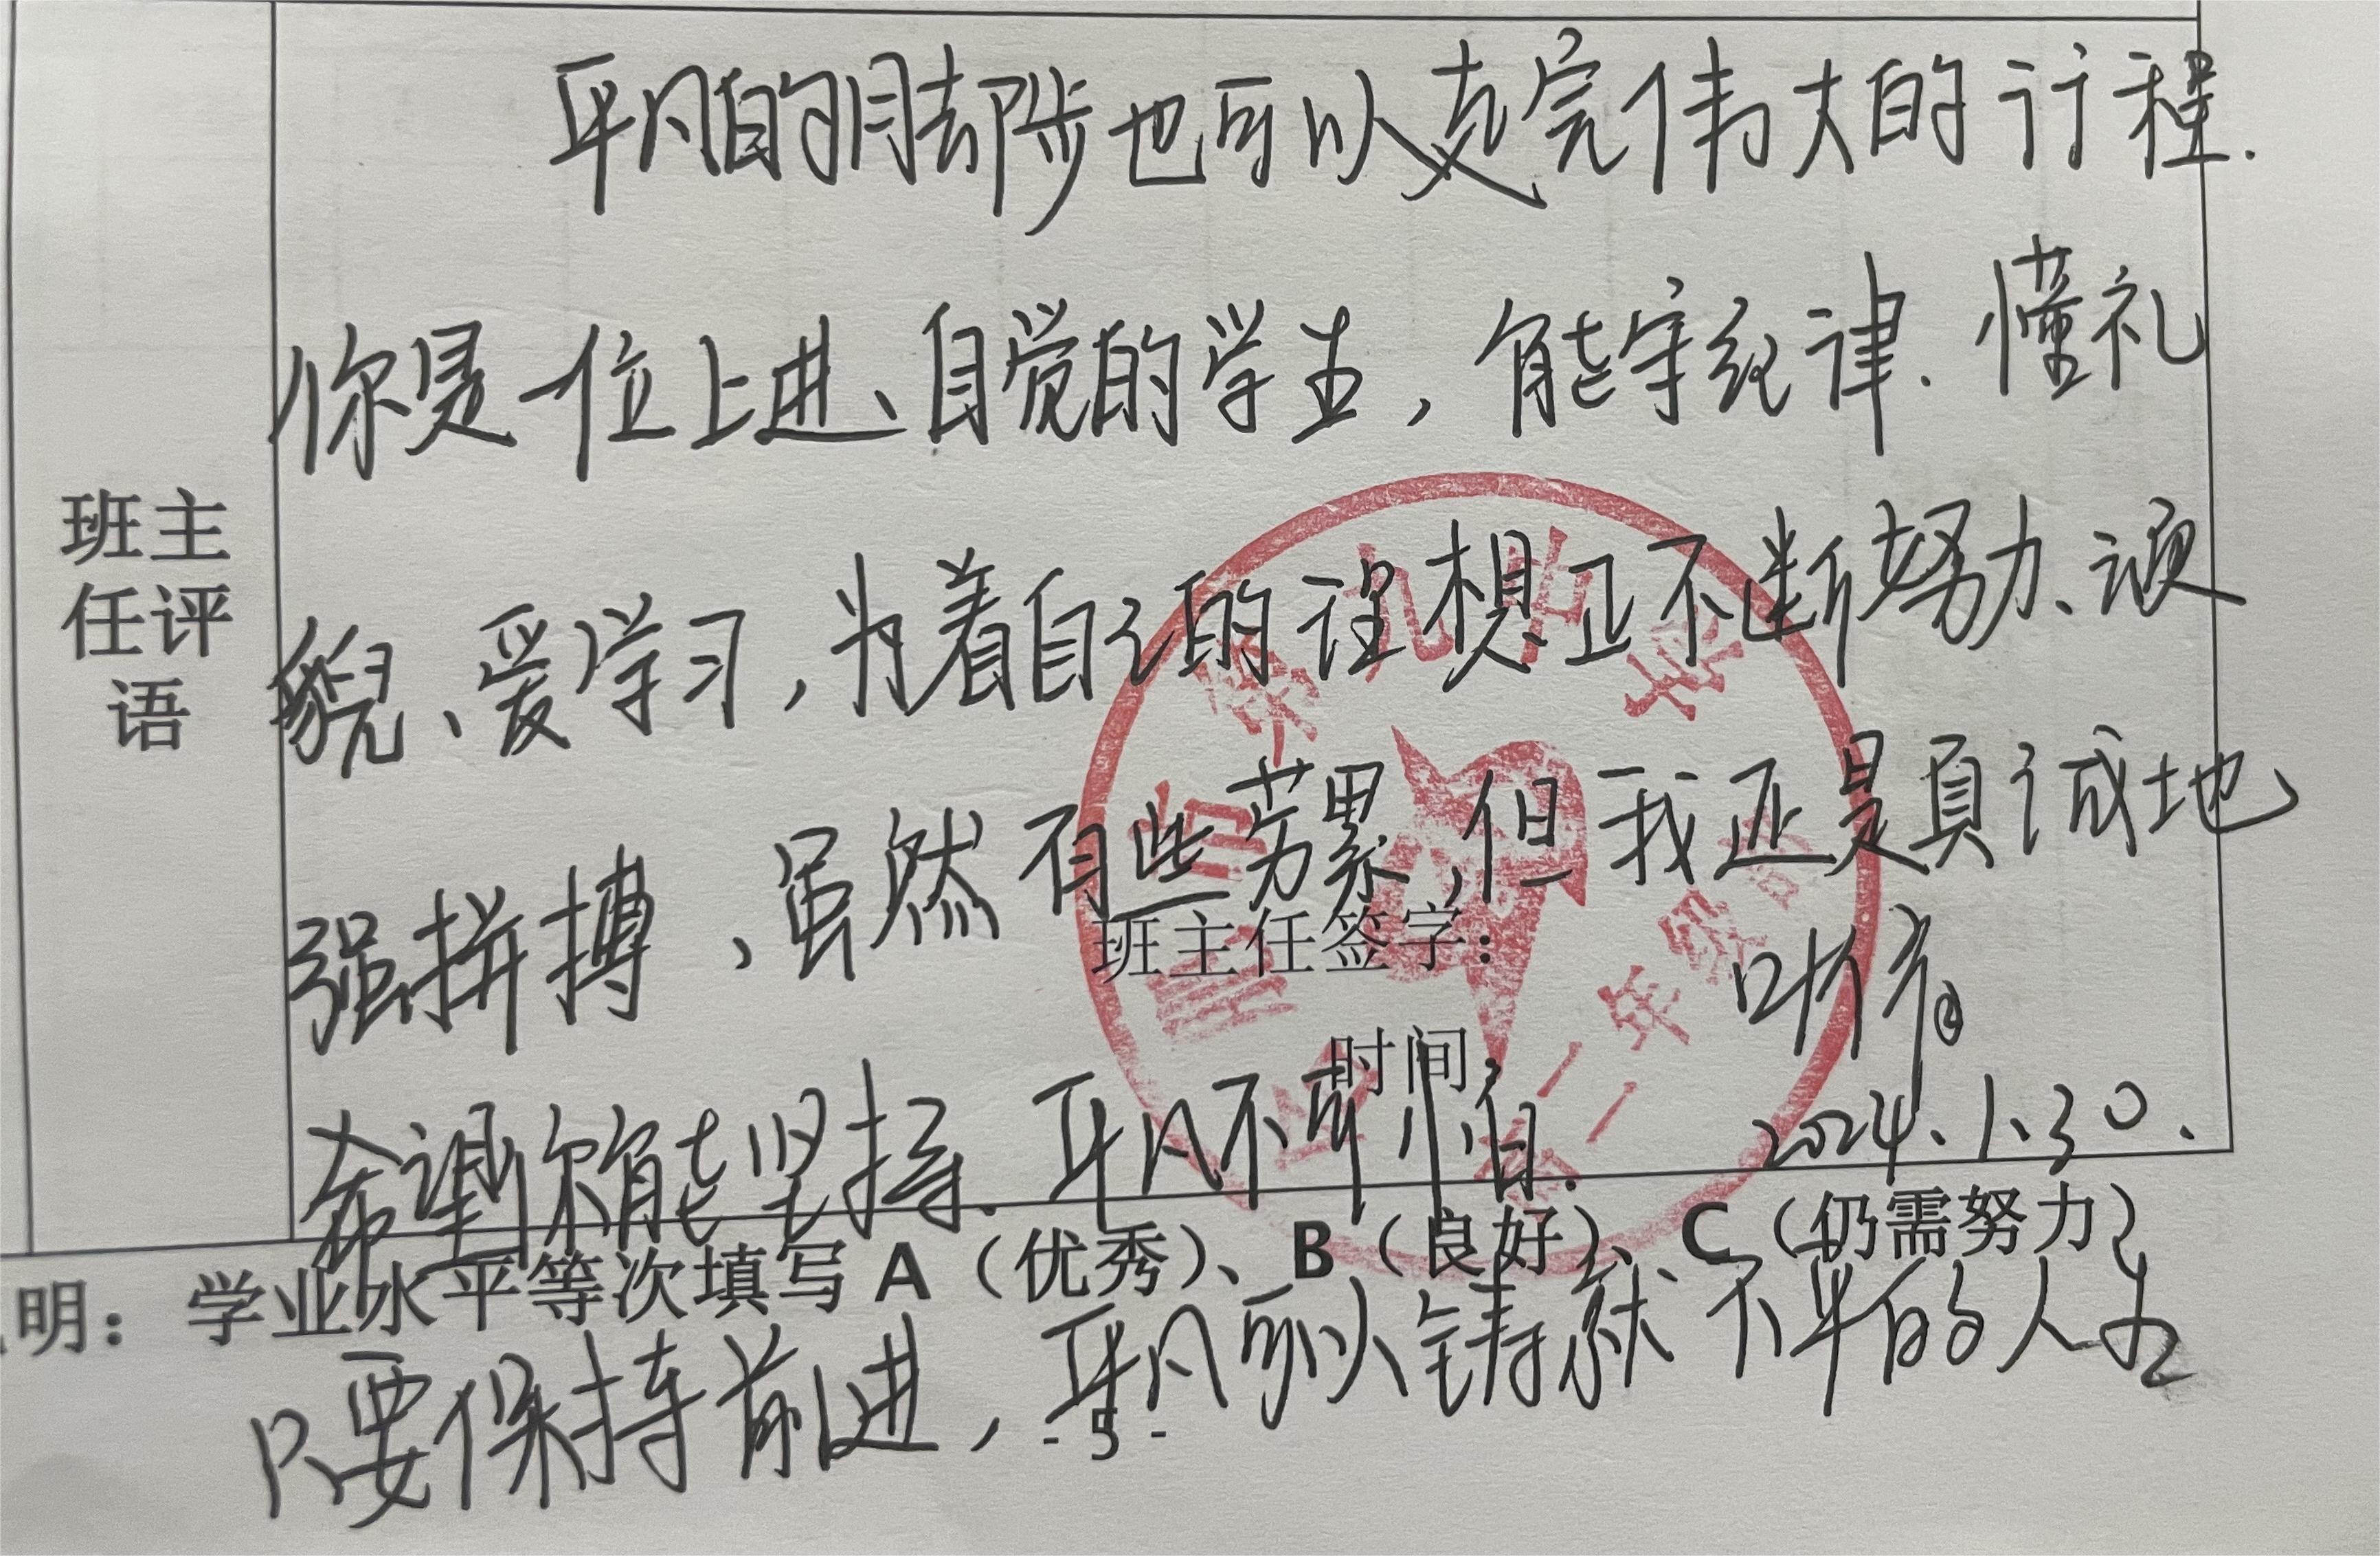 平凡的脚步也可以走完伟大的行程.
你是一位上进、自觉的学生，能守纪律.懂礼
貌、爱学习，为着自己的理想正不断努力、顽
强拼搏、虽然有些劳累，但我还是真诚地
希望你能坚持.平凡不可怕.
只要保持前进，平凡可以铸就不平的人生
班主
任评
语
班主任签字：
时间：
2024.1.30.
明：学业水平等次填写 A（优秀）、B（良好）、C（仍需努力）
- 5 -